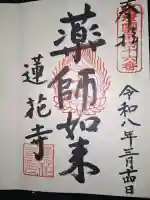 奉拝
薬師如来
蓮花寺
令和八年三月十四日